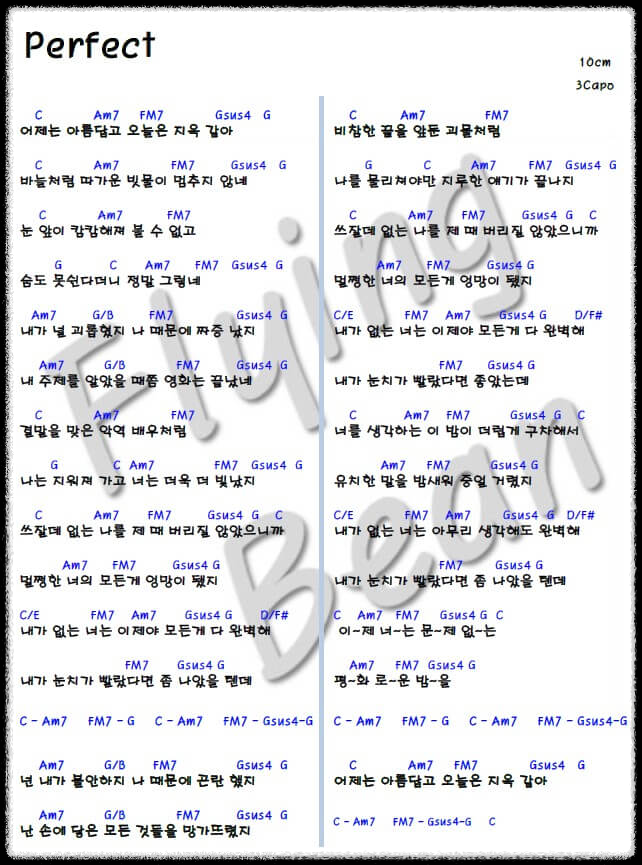 Perfect
10cm
3Capo
C Am7 FM7 Gsus4 G
어제는 아름답고 오늘은 지옥 같아
C Am7 FM7 Gsus4 G
바늘처럼 따가운 빗물이 멈추지 않네
C Am7 FM7
눈 앞이 캄캄해져 볼 수 없고
G C Am7 FM7 Gsus4 G
숨도 못쉰다더니 정말 그렇네
Am7 G/B FM7 Gsus4 G
내가 널 괴롭혔지 나 때문에 짜증 났지
Am7 G/B FM7 Gsus4 G
내 주제를 알았을 때쯤 영화는 끝났네
C Am7 FM7
결말을 맞은 악역 배우처럼
G C Am7 FM7 Gsus4 G
나는 지워져 가고 너는 더욱 더 빛났지
C Am7 FM7 Gsus4 G C
쓰잘데 없는 나를 제 때 버리질 않았으니까
Am7 FM7 Gsus4 G
멀쩡한 너의 모든게 엉망이 됐지
C/E FM7 Am7 Gsus4 G D/F#
내가 없는 너는 이제야 모든게 다 완벽해
FM7 Gsus4 G
내가 눈치가 빨랐다면 좀 나았을 텐데
C - Am7 FM7 - G C - Am7 FM7 - Gsus4-G
Am7 G/B FM7 Gsus4 G
넌 내가 불안하지 나 때문에 곤란 했지
Am7 G/B FM7 Gsus4 G
난 손에 닿은 모든 것들을 망가뜨렸지
C Am7 FM7
비참한 끝을 앞둔 괴물처럼
G C Am7 FM7 Gsus4 G
나를 물리쳐야만 지루한 얘기가 끝나지
C Am7 FM7 Gsus4 G C
쓰잘데 없는 나를 제 때 버리질 않았으니까
Am7 FM7 Gsus4 G
멀쩡한 너의 모든게 엉망이 됐지
C/E FM7 Am7 Gsus4 G D/F#
내가 없는 너는 이제야 모든게 다 완벽해
FM7 Gsus4 G
내가 눈치가 빨랐다면 좋았는데
C Am7 FM7 Gsus4 G C
너를 생각하는 이 밤이 더럽게 구차해서
Am7 FM7 Gsus4 G
유치한 말을 밤새워 중얼 거렸지
C/E FM7 Am7 Gsus4 G D/F#
내가 없는 너는 아무리 생각해도 완벽해
FM7 Gsus4 G
내가 눈치가 빨랐다면 좀 나았을 텐데
C Am7 FM7 Gsus4 G C
이~제 너~는 문~제 없~는
Am7 FM7 Gsus4 G
평~화 로~운 밤~을
C - Am7 FM7 - G C - Am7 FM7 - Gsus4-G
C Am7 FM7 Gsus4 G
어제는 아름답고 오늘은 지옥 같아
C - Am7 FM7 - Gsus4-G C
Flying
Bean